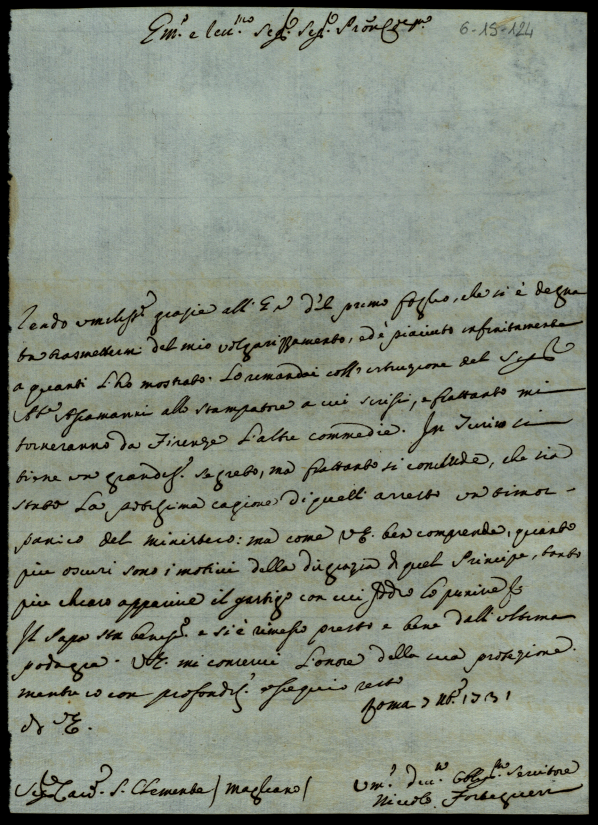 Em.º e Rev.mo Sig.r Sig.r Pron Col.mo
6-15-124
Rendo umiliss.e grazie all' E. V. del primo foglio, che si è degna
ta trasmettermi del mio volgarizzamento, ed è piaciuto infinitamente
a quanti l'ho mostrato. Lo rimandai coll' istruzione del Sig.r
Ab.e Alamanni allo stampatore a cui scrissi, e frattanto mi
torneranno da Firenze l'altre commedie. In Turino si
tiene un grandis.o segreto, ma frattanto si conclude, che sia
stato la potissima cagione di quelli arresto un timor
panico del ministero: ma come V. E. ben comprende, quanto
più oscuri sono i motivi della disgrazia di quel Principe, tanto
più chiaro apparisce il gastigo con cui Iddio lo punisce
Il Papa sta beniss.o e si è rimesso presto e bene dall'ultima
podagra. V. E. mi conservi l'onore della sua protezione.
mentre io con profondis.o ossequio resto
di V. E.
Roma 1731
Sig.r Card. S. Clemente / Magliano /
Um.o Dev.mo Obl.mo Servitore
Niccolò Forteguerri